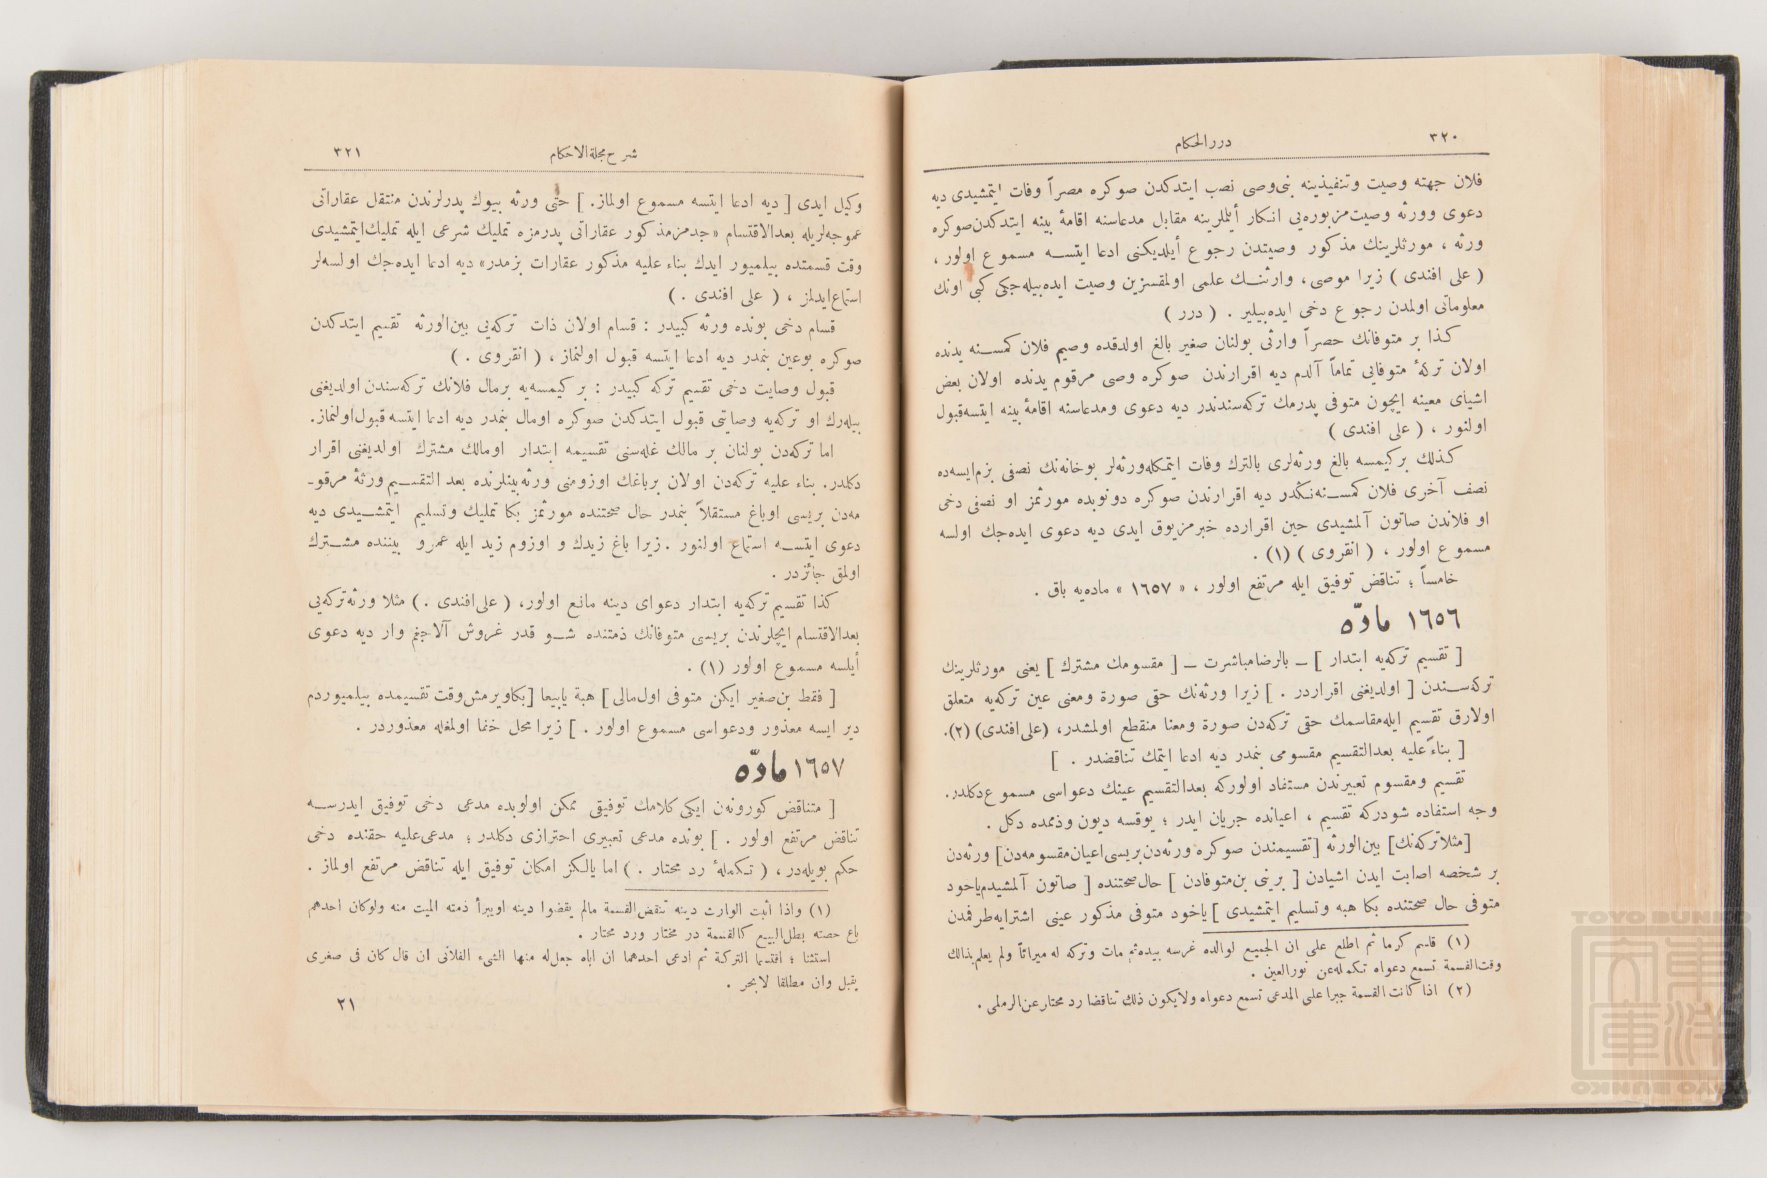 ٣٢٠
دررالحكام
فلان جهته وصيت وتنفيذينه بنى وصى نصب ايتدكدن صوكره مصراً وفات ايتمشيدى ديه
دعوى وورثه وصيت مزبوره يى انكار أيلملرينه مقابل مدعاسنه اقامۀ بينه ايتدكدن صوكره
ورثه ، مورثلرينك مذكور وصيتدن رجوع أيلديكنى ادعا ايتسه مسموع اولور ،
( على افندى ) زيرا موصى، وارثنك علمى اولمقسزين وصيت ايده بيله جكى كبى اونك
معلوماتى اولمدن رجوع دخى ايده بيلير . ( درر )
كذا بر متوفانك حصراً وارثى بولنان صغير بالغ اولدقده وصيم فلان كمسنه يدنده
اولان تركۀ متوفايى تماماً آلدم ديه اقرارندن صوكره وصى مرقوم يدنده اولان بعض
اشياى معينه ايچون متوفى پدرمك تركه سندندر ديه دعوى ومدعاسنه اقامۀ بينه ايتسه قبول
اولنور ، ( على افندى )
كذلك بر كيمسه بالغ ورثه لرى بالترك وفات ايتمكله ورثه لر بو خانه نك نصفى بزم ايسه ده
نصف آخرى فلان كمسنه نكدر ديه اقرارندن صوكره دونوبده مورثمز او نصفى دخى
او فلاندن صاتون آلمشيدى حين اقرارده خبرمز يوق ايدى ديه دعوى ايده جك اولسه
مسموع اولور ، ( انقروى ) (١) .
خامساً ؛ تناقض توفيق ايله مرتفع اولور ، « ١٦٥٧ » ماده يه باق .
١٦٥٦ مادّه
[ تقسيم تركه يه ابتدار ] ــ بالرضا مباشرت ــ [ مقسومك مشترك ] يعنى مورثلرينك
تركه سندن [ اولديغنى اقراردر . ] زيرا ورثه نك حقى صورة ومعنى عين تركه يه متعلق
اولارق تقسيم ايله مقاسمك حقى تركه دن صورة ومعنا منقطع اولمشدر، (على افندى) (٢).
[ بناءً عليه بعدالتقسيم مقسومى بنمدر ديه ادعا ايتمك تناقضدر . ]
تقسيم ومقسوم تعبيرندن مستفاد اولوركه بعدالتقسيم عينك دعواسى مسموع دكلدر.
وجه استفاده شودركه تقسيم ، اعيانده جريان ايدر ؛ يوقسه ديون وذممده دكل .
[مثلا تركه نك] بين الورثه [تقسيمندن صوكره ورثه دن بريسى اعيان مقسومه دن] ورثه دن
بر شخصه اصابت ايدن اشيادن [ برينى بن متوفادن ] حال صحتنده [ صاتون آلمشيدم ياخود
متوفى حال صحتنده بكا هبه وتسليم ايتمشيدى ] ياخود متوفى مذكور عينى اشترايه طرفمدن
(١) قاسم كرما ثم اطلع على ان الجميع لوالده غرسه بيده ثم مات وتركه له ميراثاً ولم يعلم بذالك
وقت القسمة تسمع دعواه تكمله عن نور العين .
(٢) اذا كانت القسمة جبرا على المدعى تسمع دعواه ولايكون ذلك تناقضا رد مختار عن الرملى .
شرح مجلة الاحكام
٣٢١
وكيل ايدى [ ديه ادعا ايتسه مسموع اولماز. ] حتى ورثه بيوك پدرلرندن منتقل عقاراتى
عموجه لريله بعدالاقتسام « جدمز مذكور عقاراتى پدرمزه تمليك شرعى ايله تمليك ايتمشيدى
وقت قسمتده بيلميور ايدك بناء عليه مذكور عقارات بزمدر» ديه ادعا ايده جك اولسه لر
استماع ايدلمز ، ( على افندى . )
قسام دخى بونده ورثه كبيدر : قسام اولان ذات تركه يى بين الورثه تقسيم ايتدكدن
صوكره بو عين بنمدر ديه ادعا ايتسه قبول اولنماز ، ( انقروى . )
قبول وصايت دخى تقسيم تركه كبيدر : بر كيمسه يه بر مال فلانك تركه سندن اولديغنى
بيله رك او تركه يه وصايتى قبول ايتدكدن صوكره اومال بنمدر ديه ادعا ايتسه قبول اولنماز.
اما تركه دن بولنان بر مالك غله سنى تقسيمه ابتدار اومالك مشترك اولديغنى اقرار
دكلدر. بناء عليه تركه دن اولان بر باغك اوزومنى ورثه بينلرنده بعد التقسيم ورثۀ مرقو-
مه دن بريسى او باغ مستقلاً بنمدر حال صحتنده مورثمز بكا تمليك وتسليم ايتمشيدى ديه
دعوى ايتسه استماع اولنور . زيرا باغ زيدك و اوزوم زيد ايله عمرو بيننده مشترك
اولمق جائزدر .
كذا تقسيم تركه يه ابتدار دعواى دينه مانع اولور، ( على افندى . ) مثلا ورثه تركه يى
بعدالاقتسام ايچلرندن بريسى متوفانك ذمتنده شو قدر غروش آلاجغم وار ديه دعوى
أيلسه مسموع اولور (١) .
[ فقط بن صغير ايكن متوفى اول مالى ] هبة يابيعا [بكاويرمش وقت تقسيمده بيلميوردم
دير ايسه معذور ودعواسى مسموع اولور . ] زيرا محل خفا اولمغله معذوردر .
١٦٥٧ مادّه
[ متناقض كورونه ن ايكى كلامك توفيقى ممكن اولوبده مدعى دخى توفيق ايدرسه
تناقض مرتفع اولور . ] بونده مدعى تعبيرى احترازى دكلدر ؛ مدعى عليه حقنده دخى
حكم بويله در، ( تكملۀ رد مختار . ) اما يالكز امكان توفيق ايله تناقض مرتفع اولماز .
(١) واذا أثبت الوارث دينه تنقض القسمة مالم يقضوا دينه اويبرأ ذمته الميت منه ولوكان احدهم
باع حصته بطل البيع كالقسمة در مختار ورد مختار .
استثنا ؛ اقتسما التركة ثم ادعى احدهما ان اباه جعل له منها الشىء الفلانى ان قال كان فى صغرى
يقبل وان مطلقا لا بحر .
٢١
TOYO BUNKO
東洋文庫
TOYO BUNKO